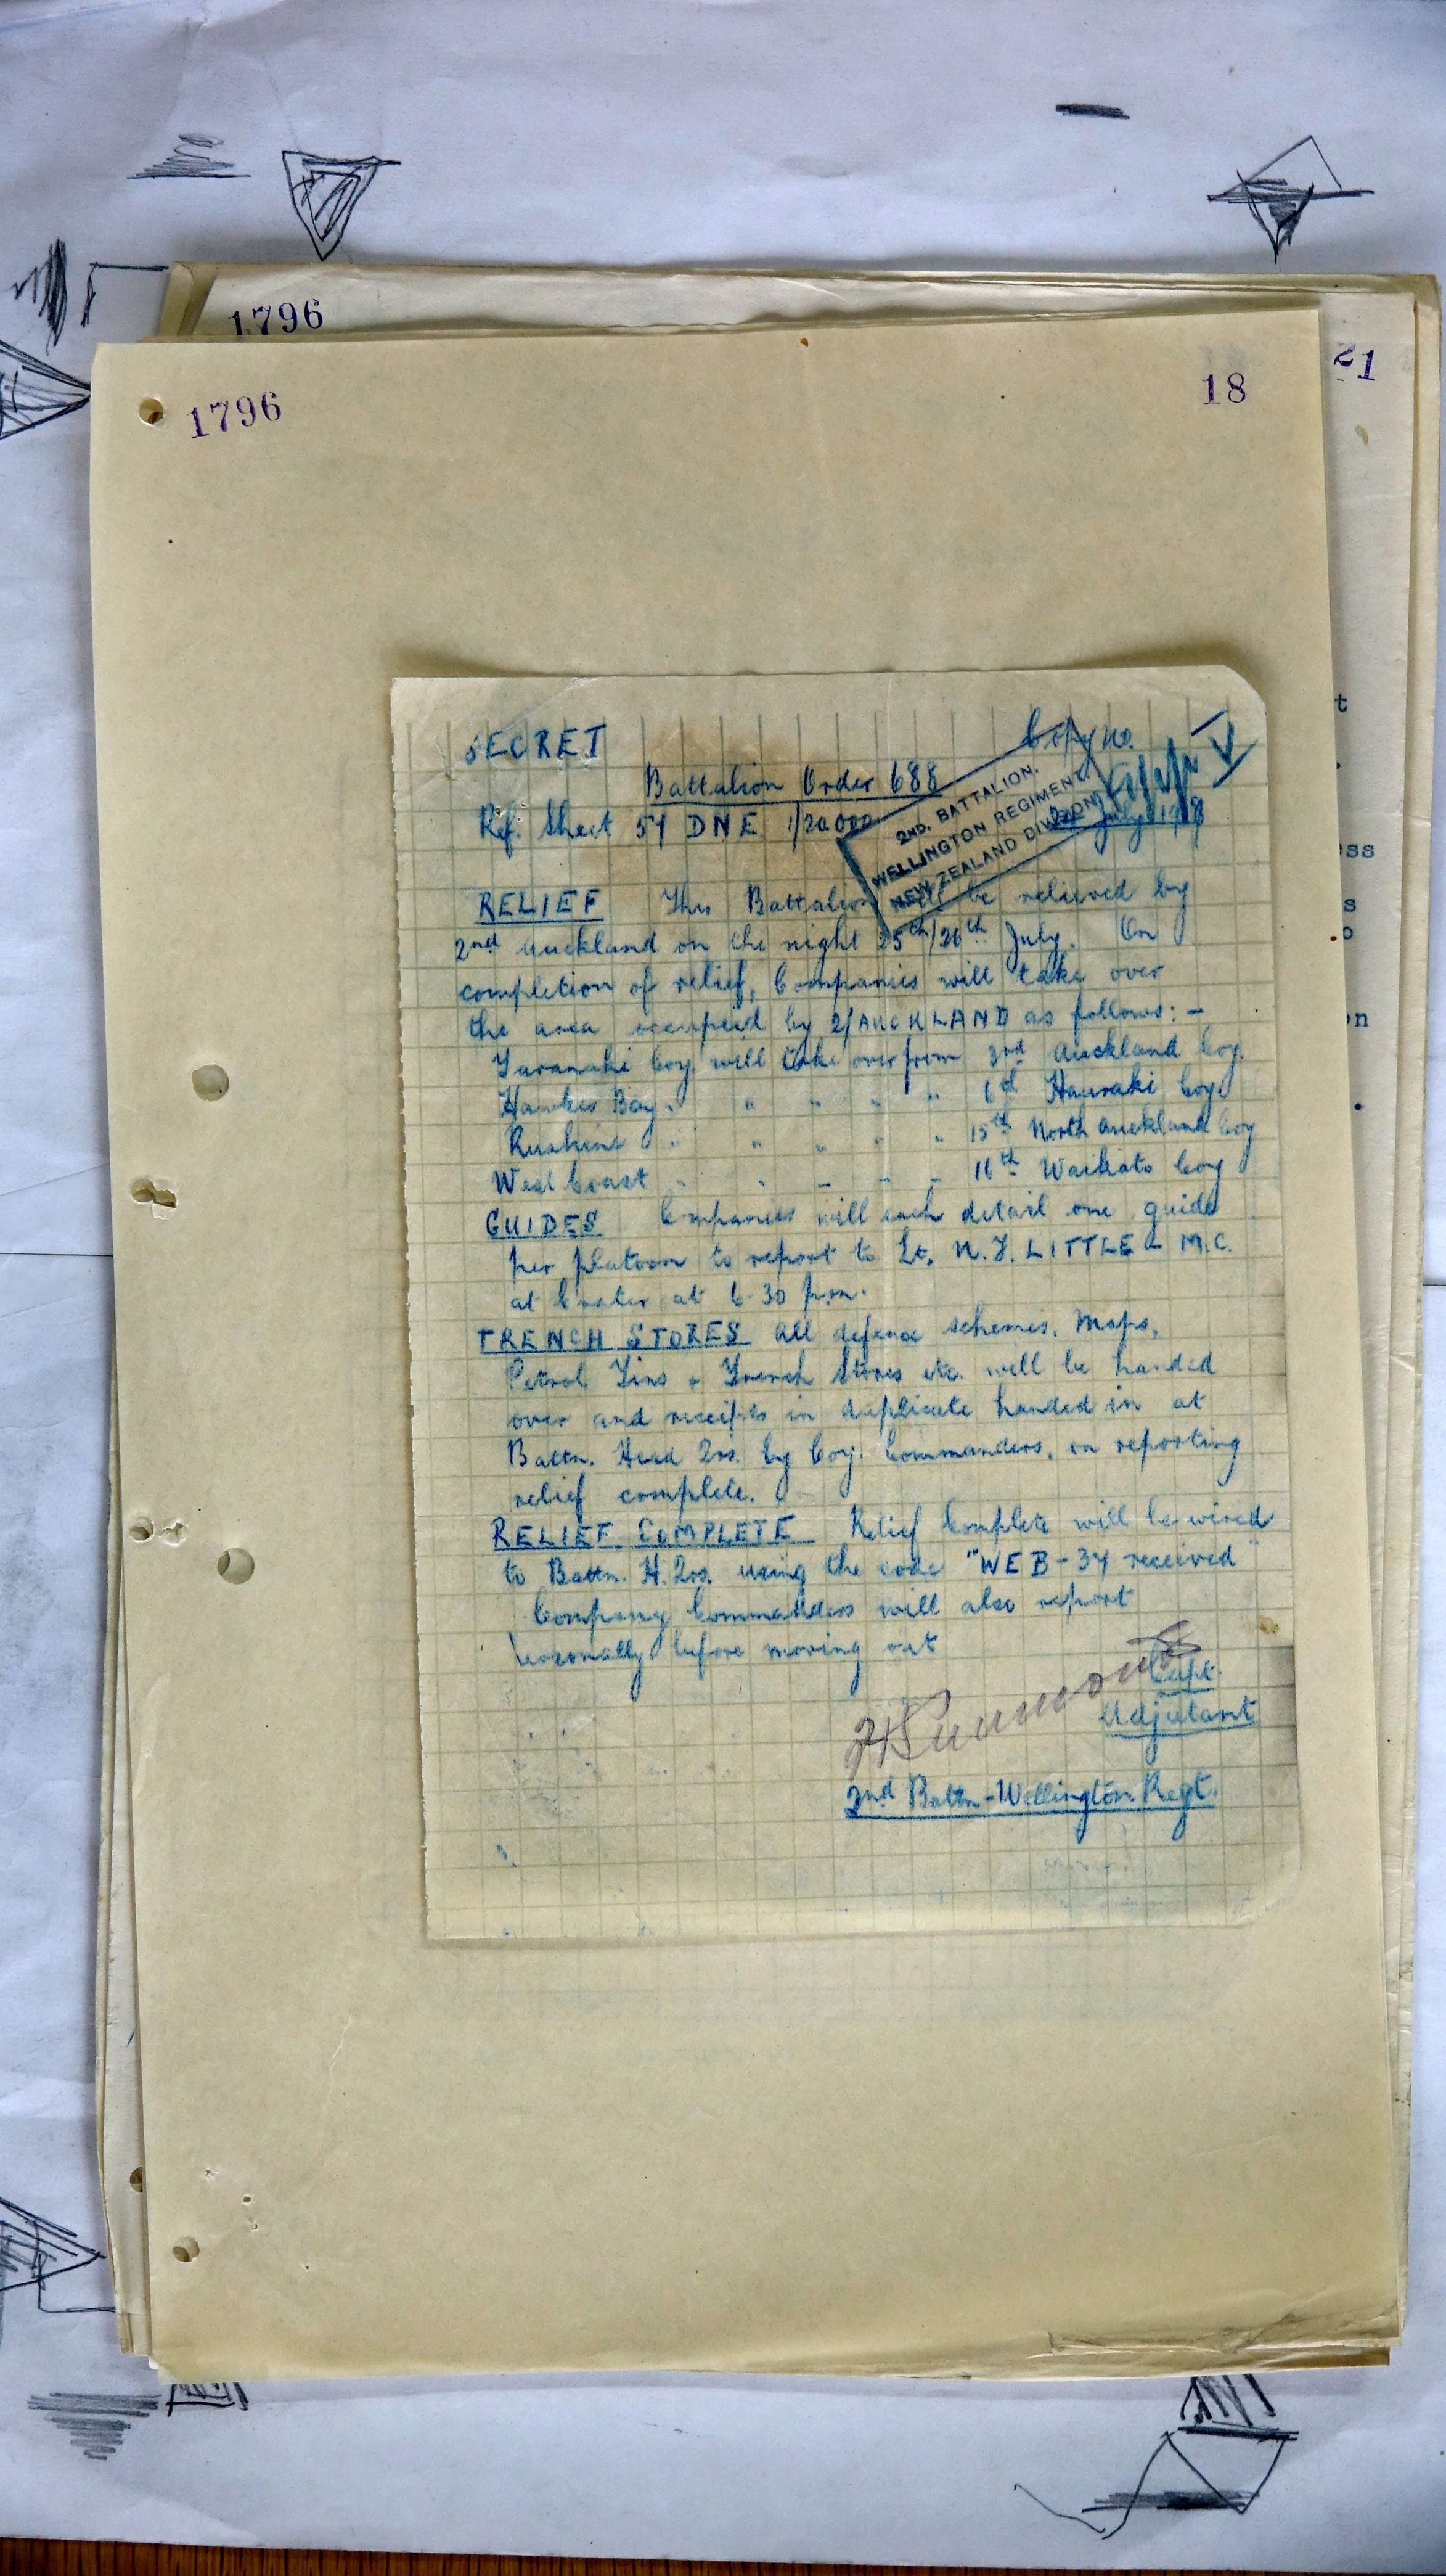 1796
21
1796
18
SECRET
Copy no.
Battalion Order 688
Ref. Sheet 57 D N E 1/20000
July 1918
2ND. BATTALION.
WELLINGTON REGIMENT.
NEW ZEALAND DIVISION
RELIEF This Battalion will be relieved by
2nd Auckland on the night 25th/26th July. On
completion of relief, Companies will take over
the area occupied by 2/AUCKLAND as follows: -
Taranaki Coy. will take over from 3rd Auckland Coy.
Hawkes Bay " " " " " 6th Hauraki Coy.
Ruahine " " " " " 15th North Auckland Coy
West Coast " " " " " 16th Waikato Coy
GUIDES Companies will each detail one guide
per platoon to report to Lt. N. J. LITTLE M.C.
at Crater at 6.30 p.m.
TRENCH STORES All defence schemes, Maps,
Petrol Tins & Trench Stores etc. will be handed
over and receipts in duplicate handed in at
Battn. Head Qrs. by Coy. Commanders, on reporting
relief complete.
RELIEF COMPLETE Relief Complete will be wired
to Battn. H. Qrs. using the code "WEB-34 received"
Company Commanders will also report
personally before moving out
Capt.
Adjutant
2nd Battn-Wellington Regt.
t
ess
s
o
on